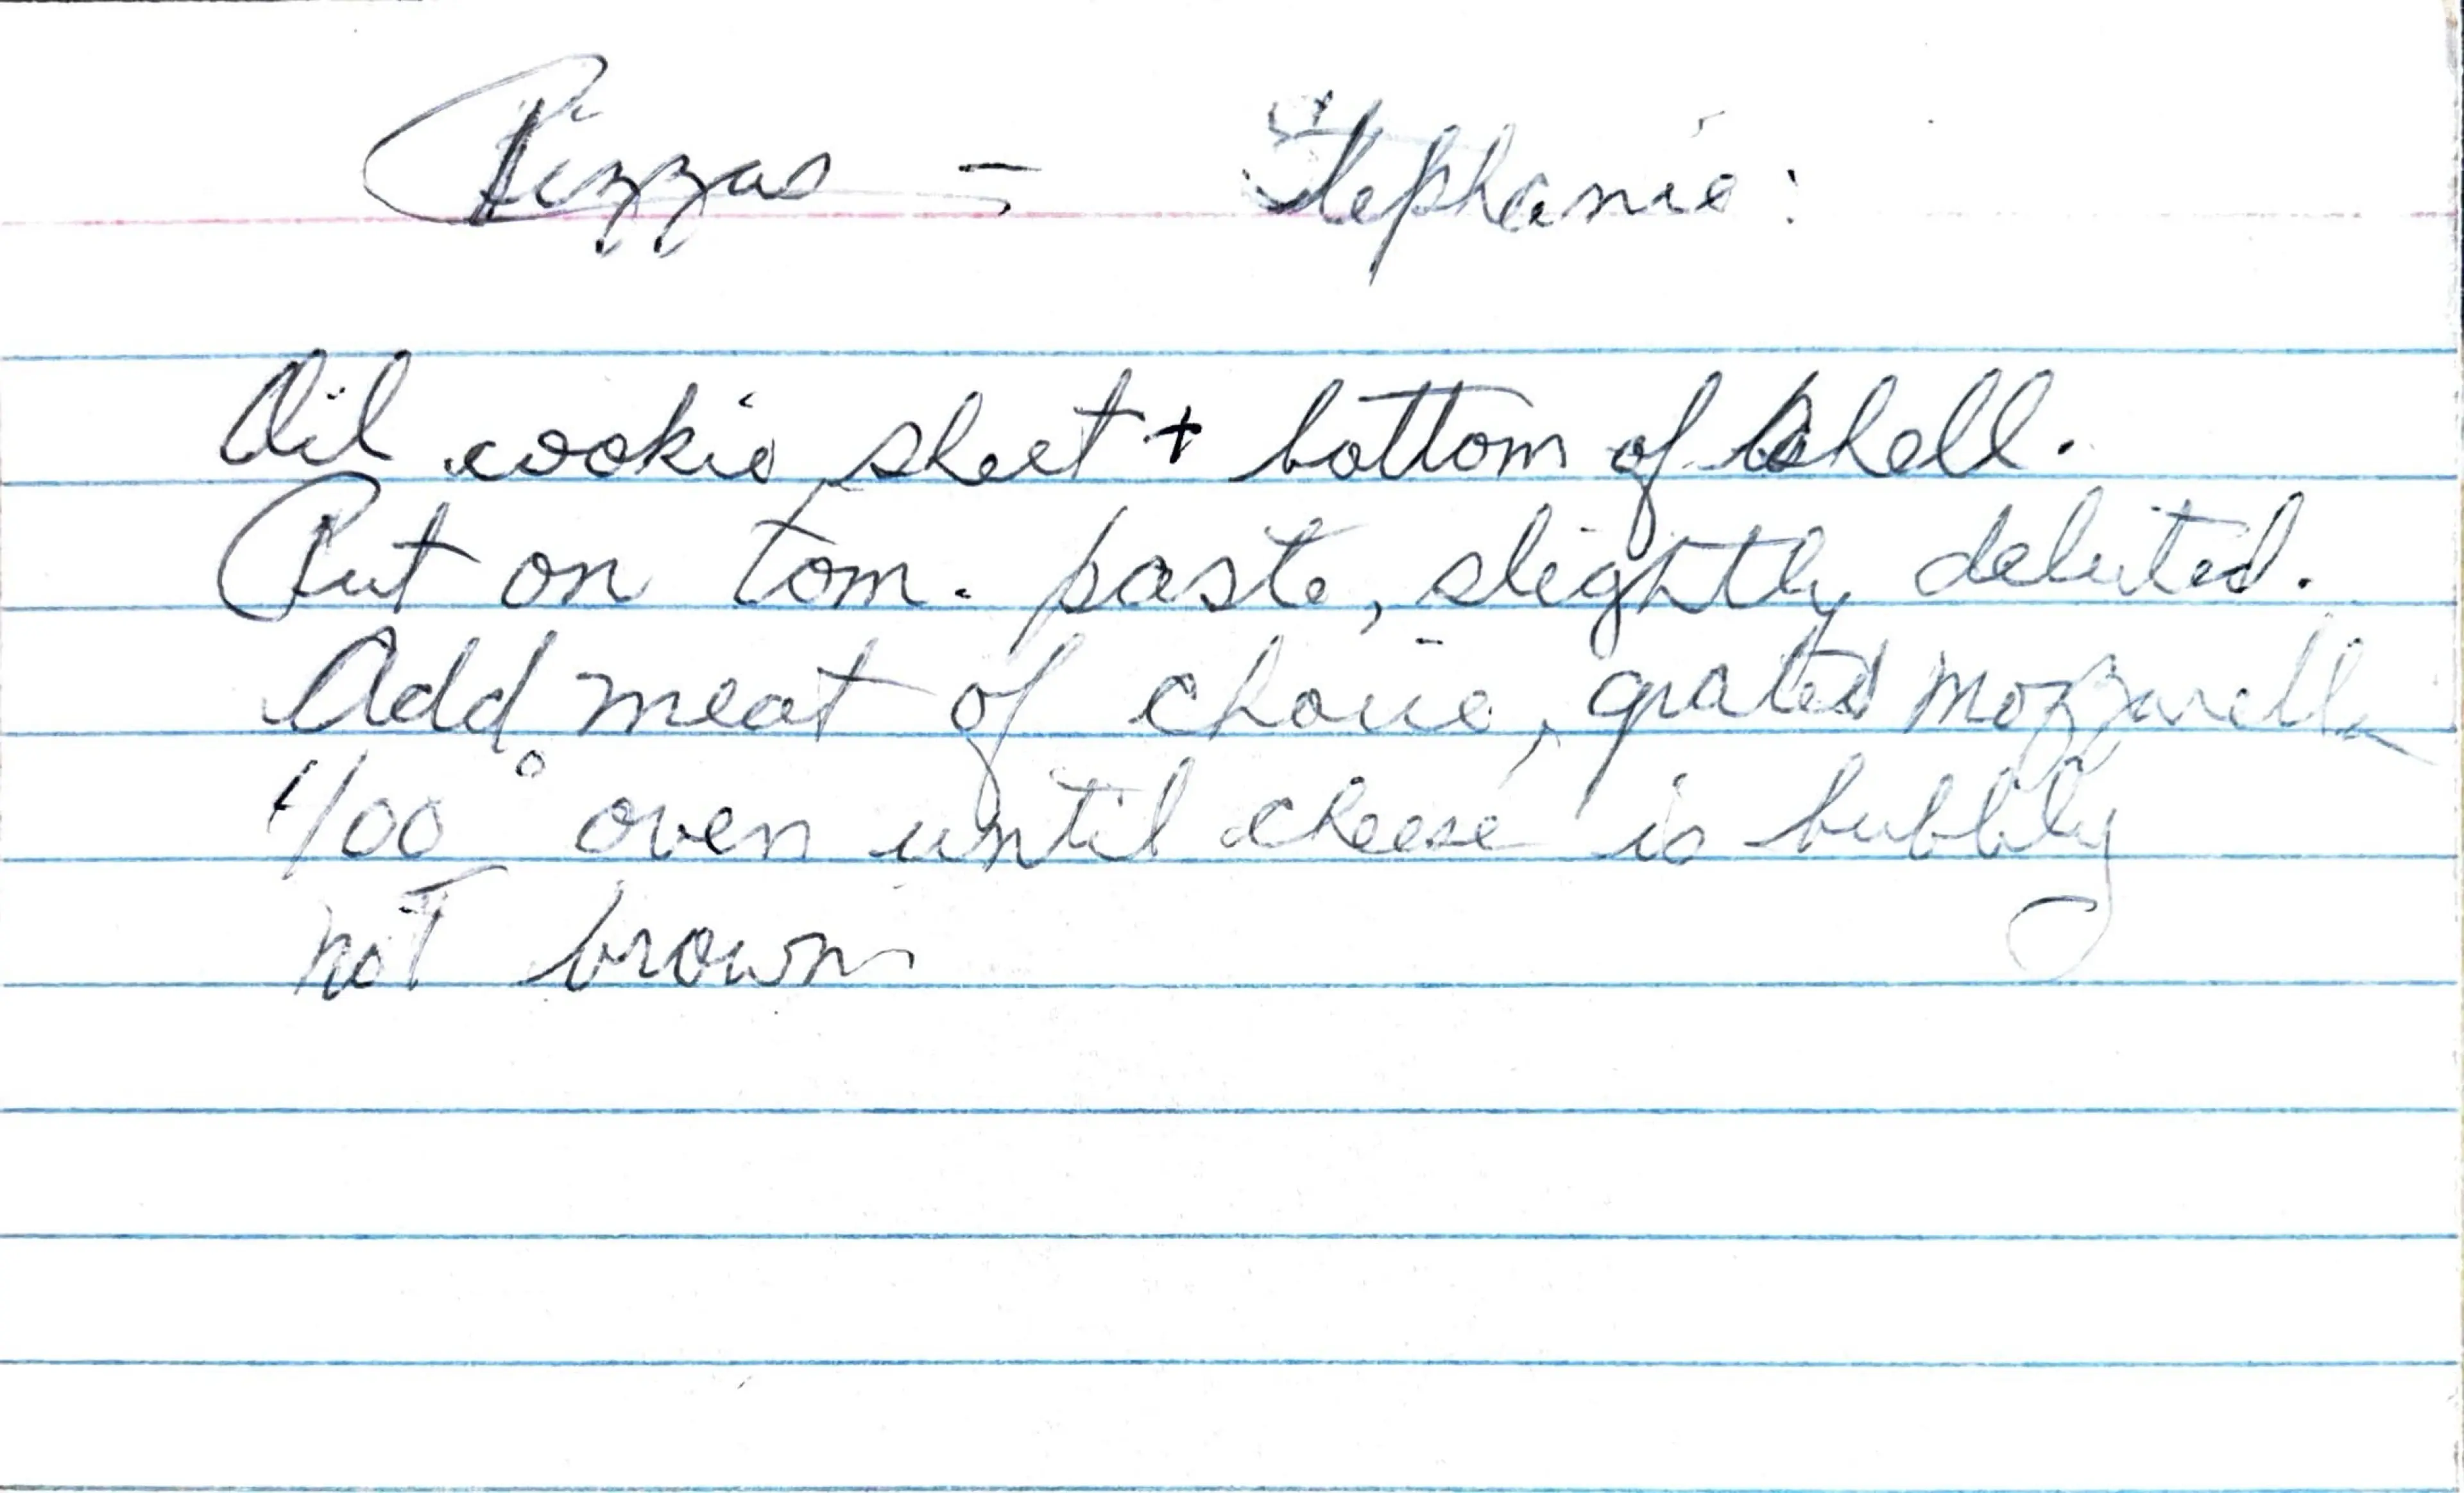 Pizzas - Stephanie:
Oil cookie sheet + bottom of shell.
Put on tom. paste, slightly deluted.
Add meat of choice, grated mozzarella
400° oven until cheese is bubbly
not brown